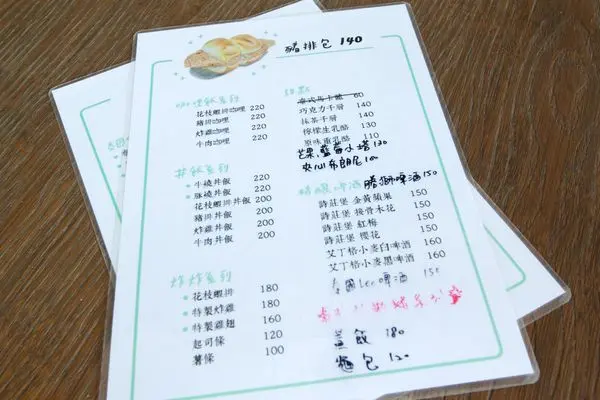 豬排包 140
咖哩飯系列
花枝蝦排咖哩 220
豬排咖哩 220
炸雞咖哩 220
牛肉咖哩 220
丼飯系列
牛燒丼飯 220
豚燒丼飯 220
花枝蝦排丼飯 200
豬排丼飯 200
炸雞丼飯 200
牛肉丼飯 200
炸炸系列
花枝蝦排 180
特製炸雞 180
特製雞翅 160
起司條 120
薯條 100
甜點
60
巧克力千層 140
抹茶千層 140
檸檬生乳酪 130
原味重乳酪 110
芒果,藍莓小塔 130
夾心布朗尼 100
精釀啤酒
啤酒 150
詩莊堡 金黃蘋果 150
詩莊堡 接骨木花 150
詩莊堡 紅梅 150
詩莊堡 櫻花 150
艾丁格小麥白啤酒 160
艾丁格小麥黑啤酒 160
泰國Leo啤酒 150
蓋飯 180
麵包 120